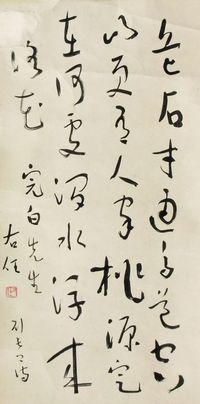 危石才通鳥道空
山更有人家桃源定
在處澗水浮來
落花
完白先生
右任
劉長卿詩